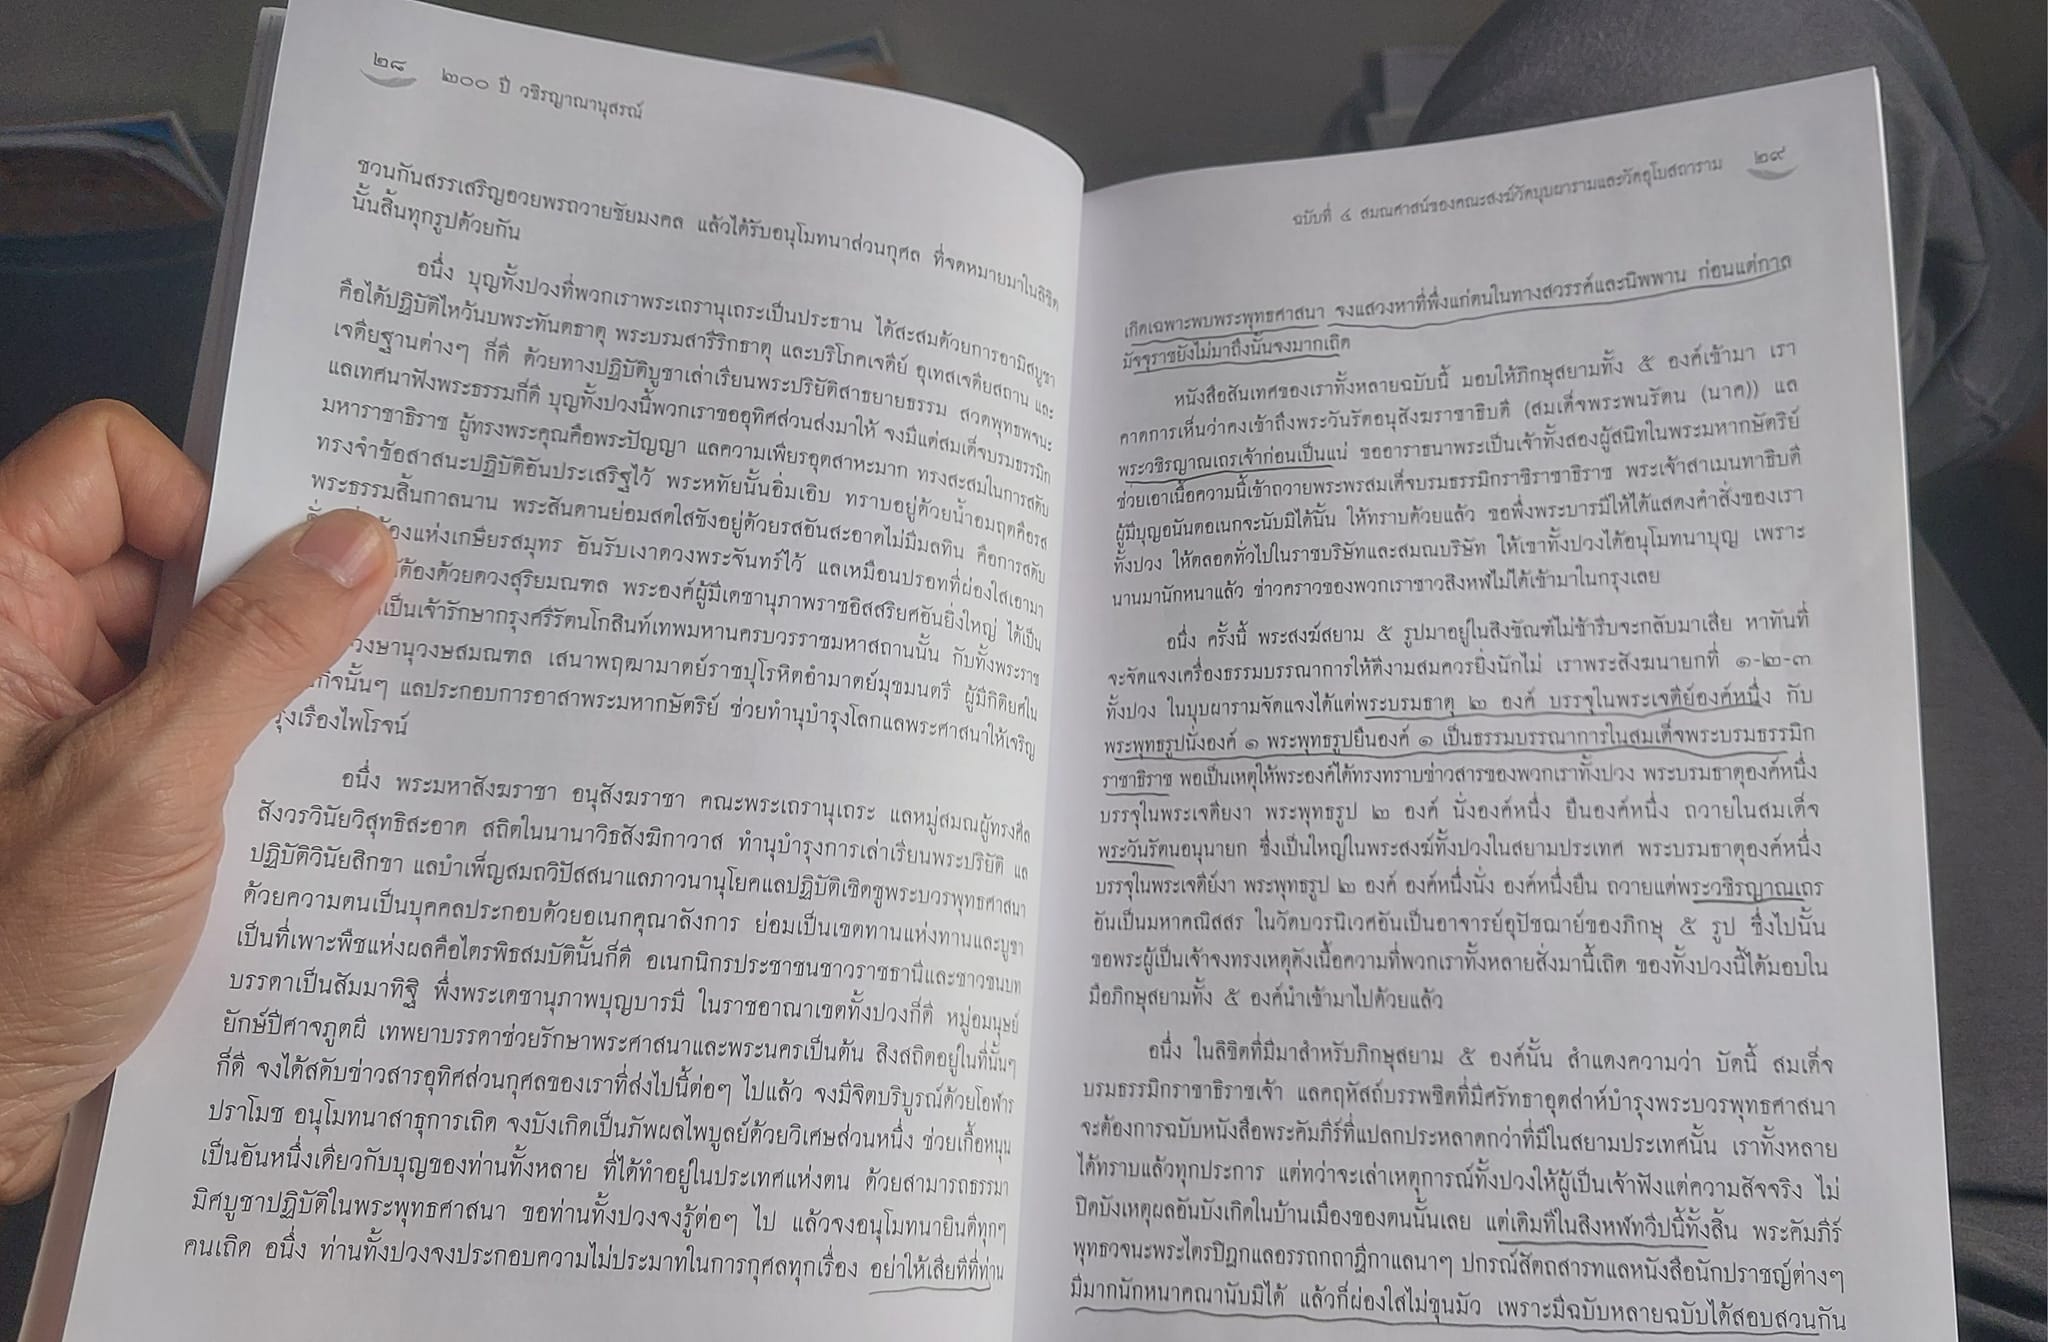 ๒๘
๒๐๐ ปี วชิรญาณานุสรณ์
ชวนกันสรรเสริญอวยพรถวายชัยมงคล แล้วได้รับอนุโมทนาส่วนกุศล ที่จดหมายมาในลิขิต
นั้นสิ้นทุกรูปด้วยกัน
อนึ่ง บุญทั้งปวงที่พวกเราพระเถรานุเถระเป็นประธาน ได้สะสมด้วยการอามิสบูชา
คือได้ปฏิบัติไหว้นบพระทันตธาตุ พระบรมสารีริกธาตุ และบริโภคเจดีย์ อุเทสเจดียสถาน และ
เจดียฐานต่างๆ ก็ดี ด้วยทางปฏิบัติบูชาเล่าเรียนพระปริยัติสาธยายธรรม สวดพุทธพจนะ
แลเทศนาฟังพระธรรมก็ดี บุญทั้งปวงนี้พวกเราขออุทิศส่วนส่งมาให้ จงมีแด่สมเด็จบรมธรรมิก
มหาราชาธิราช ผู้ทรงพระคุณคือพระปัญญา แลความเพียรอุตสาหะมาก ทรงสะสมในการสดับ
ทรงจำข้อสาสนะปฏิบัติอันประเสริฐไว้ พระหทัยนั้นอิ่มเอิบ ทราบอยู่ด้วยน้ำอมฤตคือรส
พระธรรมสิ้นกาลนาน พระสันดานย่อมสดใสขังอยู่ด้วยรสอันสะอาดไม่มีมลทิน คือการสดับ
แห่งเกษียรสมุทร อันรับเงาดวงพระจันทร์ไว้ แลเหมือนปรอทที่ผ่องใสเอามา
ต้องด้วยดวงสุริยมณฑล พระองค์ผู้มีเดชานุภาพราชอิสสริยศอันยิ่งใหญ่ ได้เป็น
เป็นเจ้ารักษากรุงศรีรัตนโกสินท์เทพมหานครบวรราชมหาสถานนั้น กับทั้งพระราช
วงษานุวงษสมณฑล เสนาพฤฒามาตย์ราชปุโรหิตอำมาตย์มุขมนตรี ผู้มีกิติยศใน
กิจนั้นๆ แลประกอบการอาสาพระมหากษัตริย์ ช่วยทำนุบำรุงโลกแลพระศาสนาให้เจริญ
รุ่งเรืองไพโรจน์
อนึ่ง พระมหาสังฆราชา อนุสังฆราชา คณะพระเถรานุเถระ แลหมู่สมณผู้ทรงศีล
สังวรวินัยวิสุทธิสะอาด สถิตในนานาวิธสังฆิกาวาส ทำนุบำรุงการเล่าเรียนพระปริยัติ แล
ปฏิบัติวินัยสิกขา แลบำเพ็ญสมถวิปัสสนาแลภาวนานุโยคแลปฏิบัติเชิดชูพระบวรพุทธศาสนา
ด้วยความตนเป็นบุคคลประกอบด้วยอเนกคุณาลังการ ย่อมเป็นเขตทานแห่งทานและบูชา
เป็นที่เพาะพืชแห่งผลคือไตรพิธสมบัตินั้นก็ดี อเนกนิกรประชาชนชาวราชธานีและชาวชนบท
บรรดาเป็นสัมมาทิฐิ พึ่งพระเดชานุภาพบุญบารมี ในราชอาณาเขตทั้งปวงก็ดี หมู่อมนุษย์
ยักษ์ปีศาจภูตผี เทพยาบรรดาช่วยรักษาพระศาสนาและพระนครเป็นต้น สิงสถิตอยู่ในที่นั้นๆ
ก็ดี จงได้สดับข่าวสารอุทิศส่วนกุศลของเราที่ส่งไปนี้ต่อๆ ไปแล้ว จงมีจิตบริบูรณ์ด้วยโอฬาร
ปราโมช อนุโมทนาสาธุการเถิด จงบังเกิดเป็นภัพผลไพบูลย์ด้วยวิเศษส่วนหนึ่ง ช่วยเกื้อหนุน
เป็นอันหนึ่งเดียวกับบุญของท่านทั้งหลาย ที่ได้ทำอยู่ในประเทศแห่งตน ด้วยสามารถธรรมา
มิศบูชาปฏิบัติในพระพุทธศาสนา ขอท่านทั้งปวงจงรู้ต่อๆ ไป แล้วจงอนุโมทนายินดีทุกๆ
คนเถิด อนึ่ง ท่านทั้งปวงจงประกอบความไม่ประมาทในการกุศลทุกเรื่อง อย่าให้เสียทีที่ท่าน
ฉบับที่ ๔ สมณศาสน์ของคณะสงฆ์วัดบุบผารามและวัดอุโบสถาราม
๒๙
เกิดเฉพาะพบพระพุทธศาสนา จงแสวงหาที่พึ่งแก่ตนในทางสวรรค์และนิพพาน ก่อนแต่กาล
มัจจุราชยังไม่มาถึงนั้นจงมากเถิด
หนังสือสันเทศของเราทั้งหลายฉบับนี้ มอบให้ภิกษุสยามทั้ง ๕ องค์เข้ามา เรา
คาดการเห็นว่าคงเข้าถึงพระวันรัตอนุสังฆราชาธิบดี (สมเด็จพระพนรัตน (นาค)) แล
พระวชิรญาณเถรเจ้าก่อนเป็นแน่ ขออาราธนาพระเป็นเจ้าทั้งสองผู้สนิทในพระมหากษัตริย์
ช่วยเอาเนื้อความนี้เข้าถวายพระพรสมเด็จบรมธรรมิกราชิราชาธิราช พระเจ้าสาเมนทาธิบดี
ผู้มีบุญอนันตอเนกจะนับมิได้นั้น ให้ทราบด้วยแล้ว ขอพึ่งพระบารมีให้ได้แสดงคำสั่งของเรา
ทั้งปวง ให้ตลอดทั่วไปในราชบริษัทและสมณบริษัท ให้เขาทั้งปวงได้อนุโมทนาบุญ เพราะ
นานมานักหนาแล้ว ข่าวคราวของพวกเราชาวสิงหฬไม่ได้เข้ามาในกรุงเลย
อนึ่ง ครั้งนี้ พระสงฆ์สยาม ๕ รูปมาอยู่ในสิงขัณฑ์ไม่ช้ารีบจะกลับมาเสีย หาทันที่
จะจัดแจงเครื่องธรรมบรรณาการให้ดีงามสมควรยิ่งนักไม่ เราพระสังฆนายกที่ ๑-๒-๓
ทั้งปวง ในบุบผารามจัดแจงได้แต่พระบรมธาตุ ๒ องค์ บรรจุในพระเจดีย์องค์หนึ่ง กับ
พระพุทธรูปนั่งองค์ ๑ พระพุทธรูปยืนองค์ ๑ เป็นธรรมบรรณาการในสมเด็จพระบรมธรรมิก
ราชาธิราช พอเป็นเหตุให้พระองค์ได้ทรงทราบข่าวสารของพวกเราทั้งปวง พระบรมธาตุองค์หนึ่ง
บรรจุในพระเจดียงา พระพุทธรูป ๒ องค์ นั่งองค์หนึ่ง ยืนองค์หนึ่ง ถวายในสมเด็จ
พระวันรัตนอนุนายก ซึ่งเป็นใหญ่ในพระสงฆ์ทั้งปวงในสยามประเทศ พระบรมธาตุองค์หนึ่ง
บรรจุในพระเจดีย์งา พระพุทธรูป ๒ องค์ องค์หนึ่งนั่ง องค์หนึ่งยืน ถวายแต่พระวชิรญาณเถร
อันเป็นมหาคณิสสร ในวัดบวรนิเวศอันเป็นอาจารย์อุปัชฌาย์ของภิกษุ ๕ รูป ซึ่งไปนั้น
ขอพระผู้เป็นเจ้าจงทรงเหตุดังเนื้อความที่พวกเราทั้งหลายสั่งมานี้เถิด ของทั้งปวงนี้ได้มอบใน
มือภิกษุสยามทั้ง ๕ องค์นำเข้ามาไปด้วยแล้ว
อนึ่ง ในลิขิตที่มีมาสำหรับภิกษุสยาม ๕ องค์นั้น สำแดงความว่า บัดนี้ สมเด็จ
บรมธรรมิกราชาธิราชเจ้า แลคฤหัสถ์บรรพชิตที่มีศรัทธาอุตส่าห์บำรุงพระบวรพุทธศาสนา
จะต้องการฉบับหนังสือพระคัมภีร์ที่แปลกประหลาดกว่าที่มีในสยามประเทศนั้น เราทั้งหลาย
ได้ทราบแล้วทุกประการ แต่ทว่าจะเล่าเหตุการณ์ทั้งปวงให้ผู้เป็นเจ้าฟังแต่ความสัจจริง ไม่
ปิดบังเหตุผลอันบังเกิดในบ้านเมืองของตนนั้นเลย แต่เดิมทีในสิงหฬทวีปนี้ทั้งสิ้น พระคัมภีร์
พุทธวจนะพระไตรปิฎกแลอรรถกถาฎีกาแลนาๆ ปกรณ์สัตถสารทแลหนังสือนักปราชญ์ต่างๆ
มีมากนักหนาคณานับมิได้ แล้วก็ผ่องใสไม่ขุนมัว เพราะมีฉบับหลายฉบับได้สอบสวนกัน